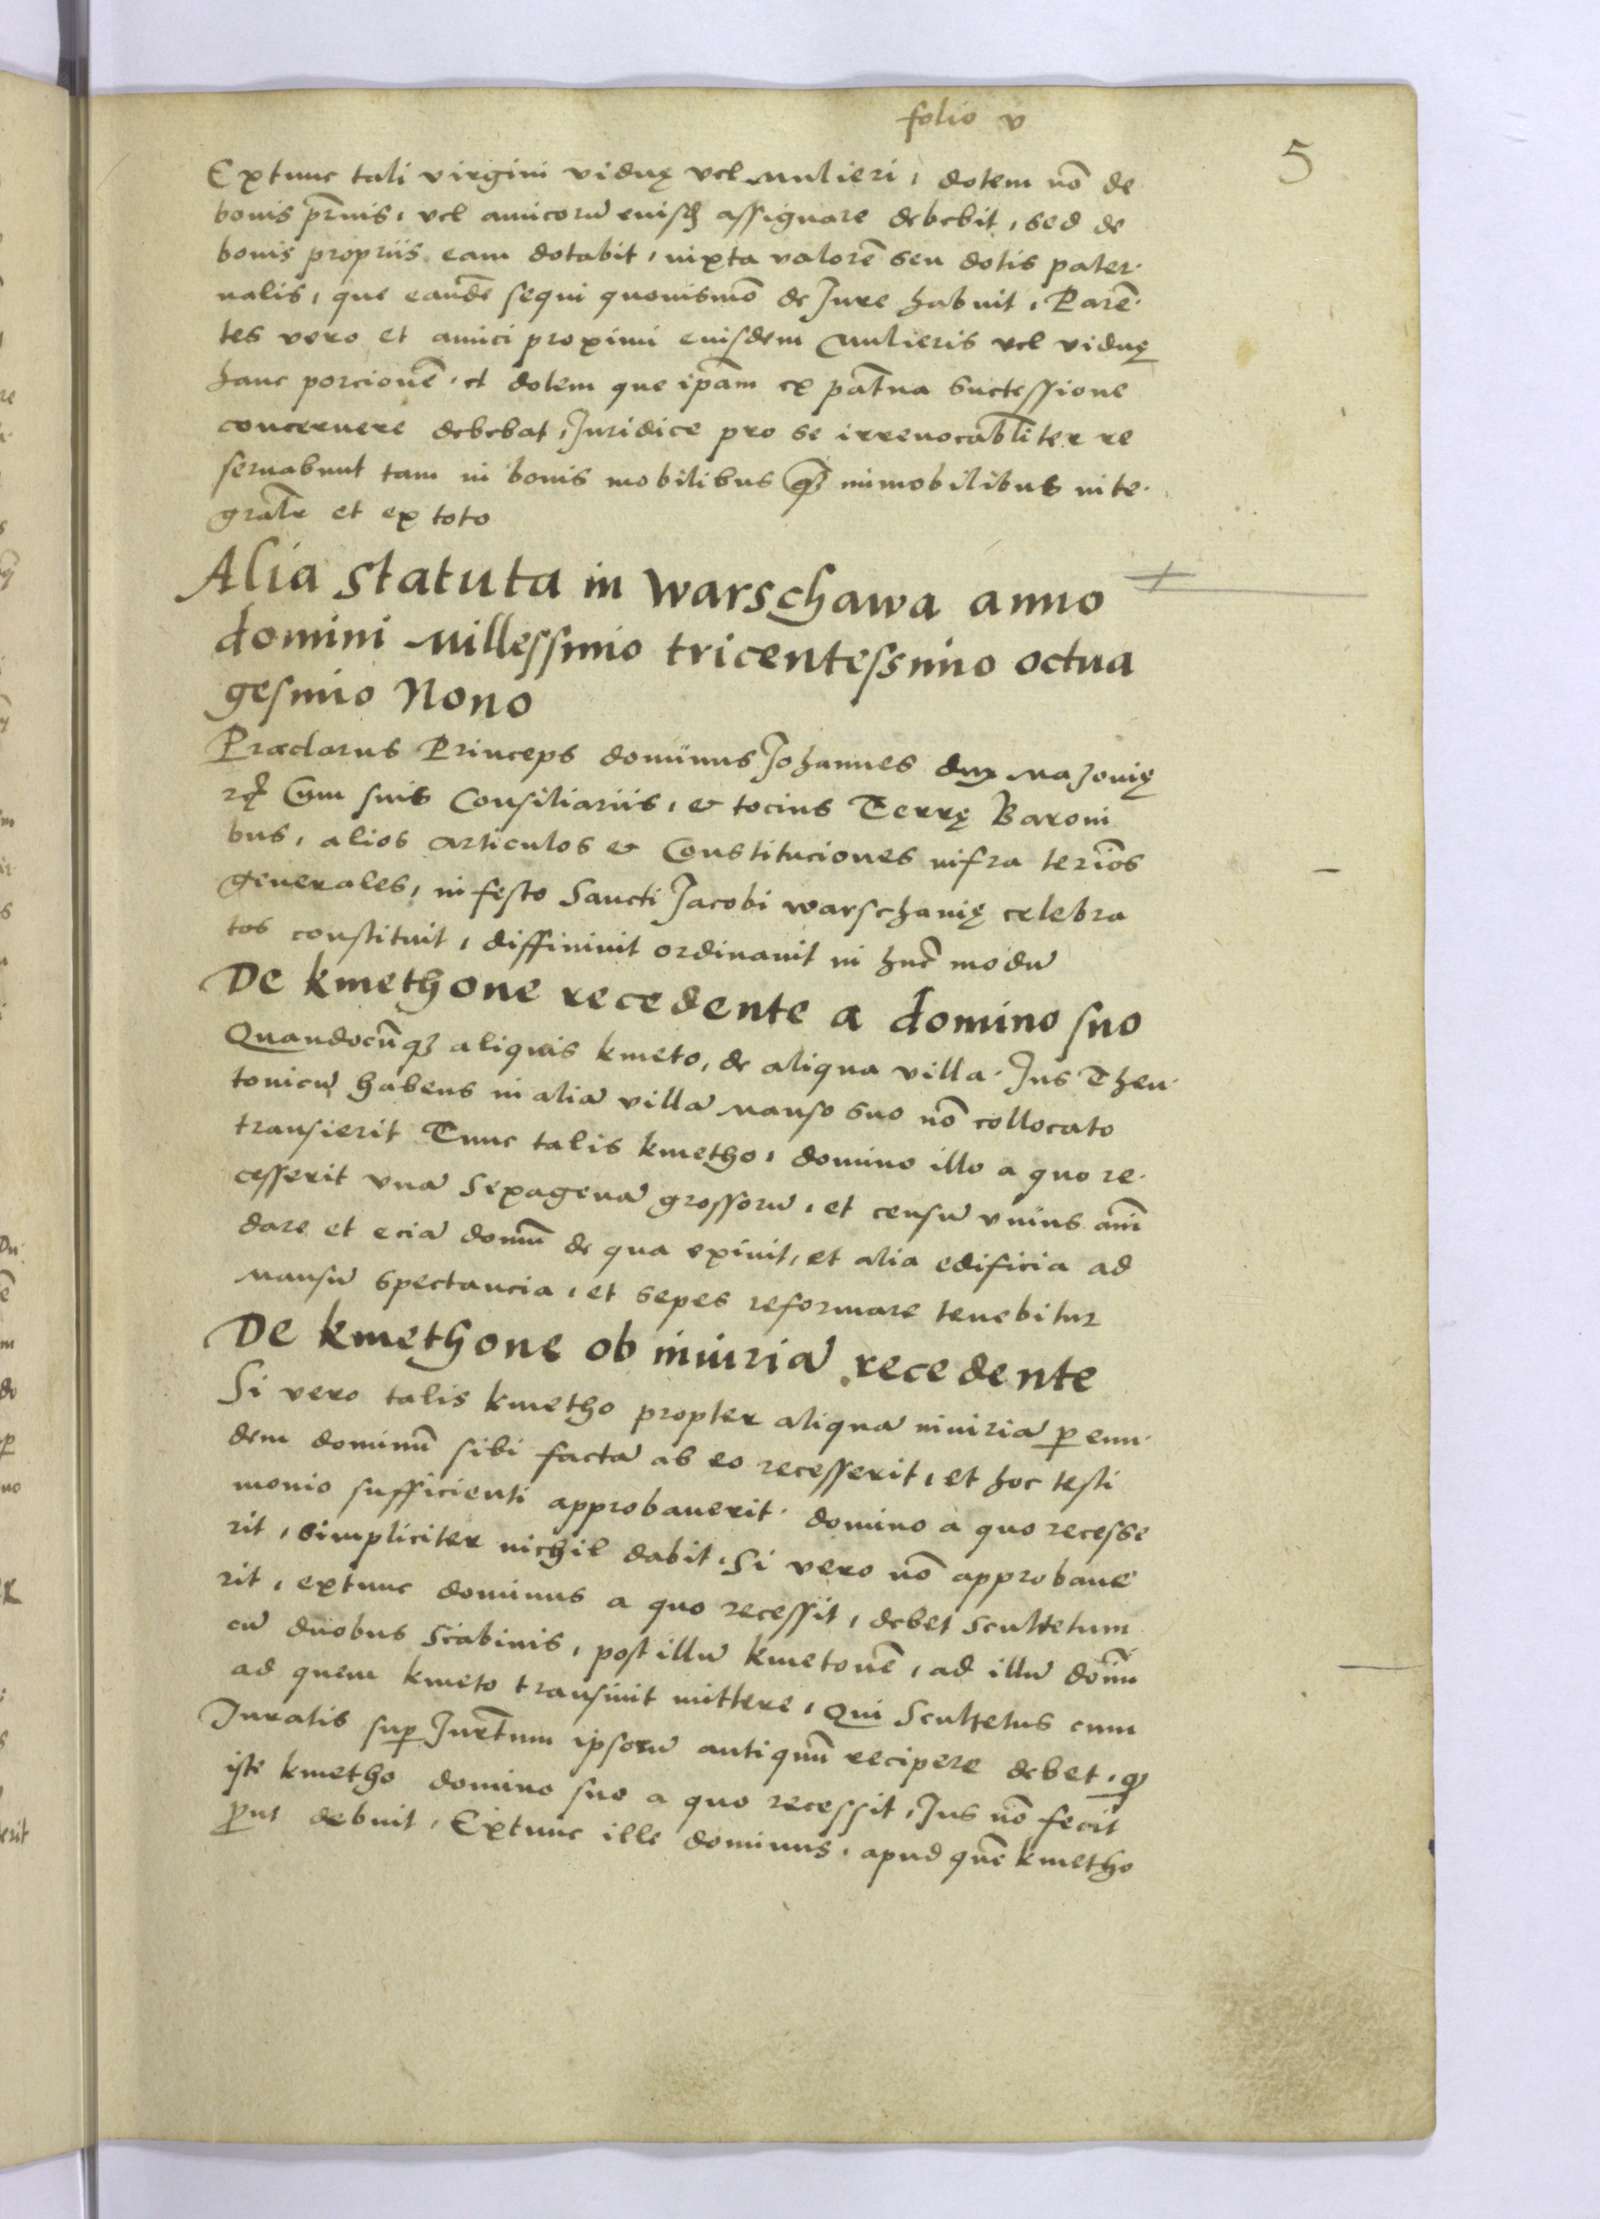 folio v
5
Extunc tali virgini viduę vel mulieri, dotem nō de
bonis pr̄nis, vel amicorū euisdē assignare debebit, sed de
bonis propriis eam dotabit, iuxta valorē seu dotis pater·
nalis, que eandē sequi quouismō de Jure habuit, Parē·
tes vero et amici proximi euisdem mulieris vel viduę
hanc porcionē, et dotem que ip̄am ex pat̄na successione
concernere debebat, Juridice pro se irreuocabl̄iter re
seruabunt tam in bonis mobilibus q̄ȝ immobilibus inte·
gralr̄ et ex toto
Alia statuta in warschawa anno
domini millessimo tricentessimo octua
gesimo Nono
Præclarus Princeps dominus Johannes dux mazouię
rc̄ Cum suis Consiliariis, & tocius Terrę Baroni
bus, alios articulos & Constituciones infra teriōs
generales, in festo Sancti Jacobi warschauię celebra
tos constituit, diffiniuit ordinauit in hūc modū
De kmethone recedente a domino suo
Quandocūqȝ aliquis kmeto, de aliqua villa· Jus Theu·
tonicū habens in aliā villā manso suo nō collocato
transierit Tunc talis kmetho, domino illo a quo re·
cesserit vnā sexagenā grossorū, et censū vnius anī
dare et eciā domū de qua exiuit, et alia edificia ad
mansū spectancia, et sepes reformare tenebitur
De kmethone ob iniuriā recedente
Si vero talis kmetho propter aliquā iniuriā ꝑ eun·
dem dominū sibi factā ab eo recesserit, et hoc testi
monio sufficienti approbauerit· domino a quo recesse
rit, simpliciter nichil dabit, Si vero nō approbaue
rit, extunc dominus a quo recessit, debet scultetum
cū duobus Scabinis, post illū kmetonē, ad illū domī
ad quem kmeto transiuit mittere, Qui Scultetus cum
Juratis suꝑ Jurt̄um ipsorū antiquū recipere debet, ꝙ
iste kmetho domino suo a quo recessit, Jus nō fecit
ꝓut debuit, Extunc ille dominus, apud quē kmetho